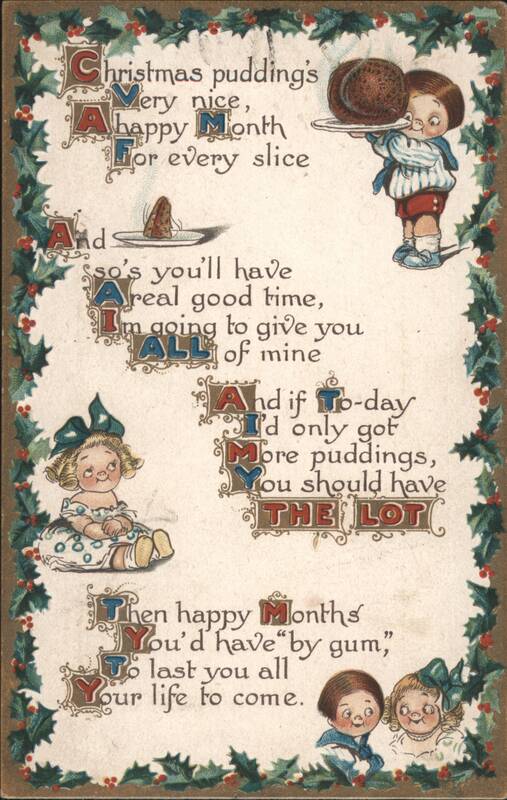 Christmas pudding's
Very nice,
A happy Month
For every slice
And
so's you'll have
A real good time,
Im going to give you
ALL of mine
And if To-day
I'd only got
More puddings,
You should have
THE LOT
Then happy Months
You'd have "by gum,"
To last you all
Your life to come.